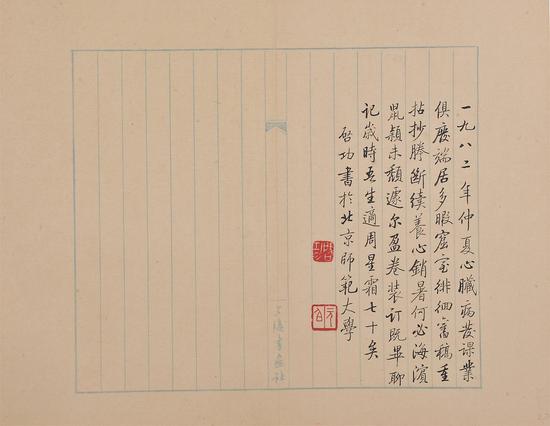 一九八二年仲夏心臟病發課業
俱廢端居多暇窑室徘徊舊稿重
拈抄勝斷續養心銷暑何必海濱
鼠潁未頹遽尔盈卷装訂既畢聊
記歲時吾生適周星霜七十矣
啓功書於北京師範大學
啟功
元白